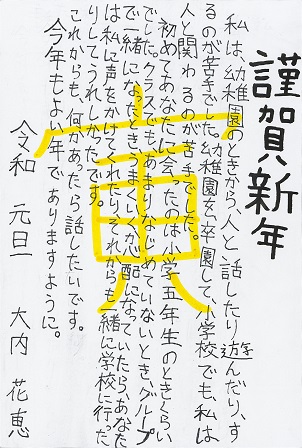 謹賀新年
私は、幼稚園のときから、人と話したり遊んだり、す
るのが苦手でした。幼稚園を卒園して、小学校でも、私は
人と関わるのが苦手でした。
初めてあなたに会ったのは小学五年生のときくらい
でした。クラスでもあまりなじめていないとき、グループ
で一緒になったとき、うまくいくか心配になっていたら、あなた
は私に声をかけてくれたり、それからも一緒に学校に行った
りしてうれしかたです。
これからも、何かあったら話したいです。
今年もよい年でありますように。
令和 元旦 大内 花恵
寅